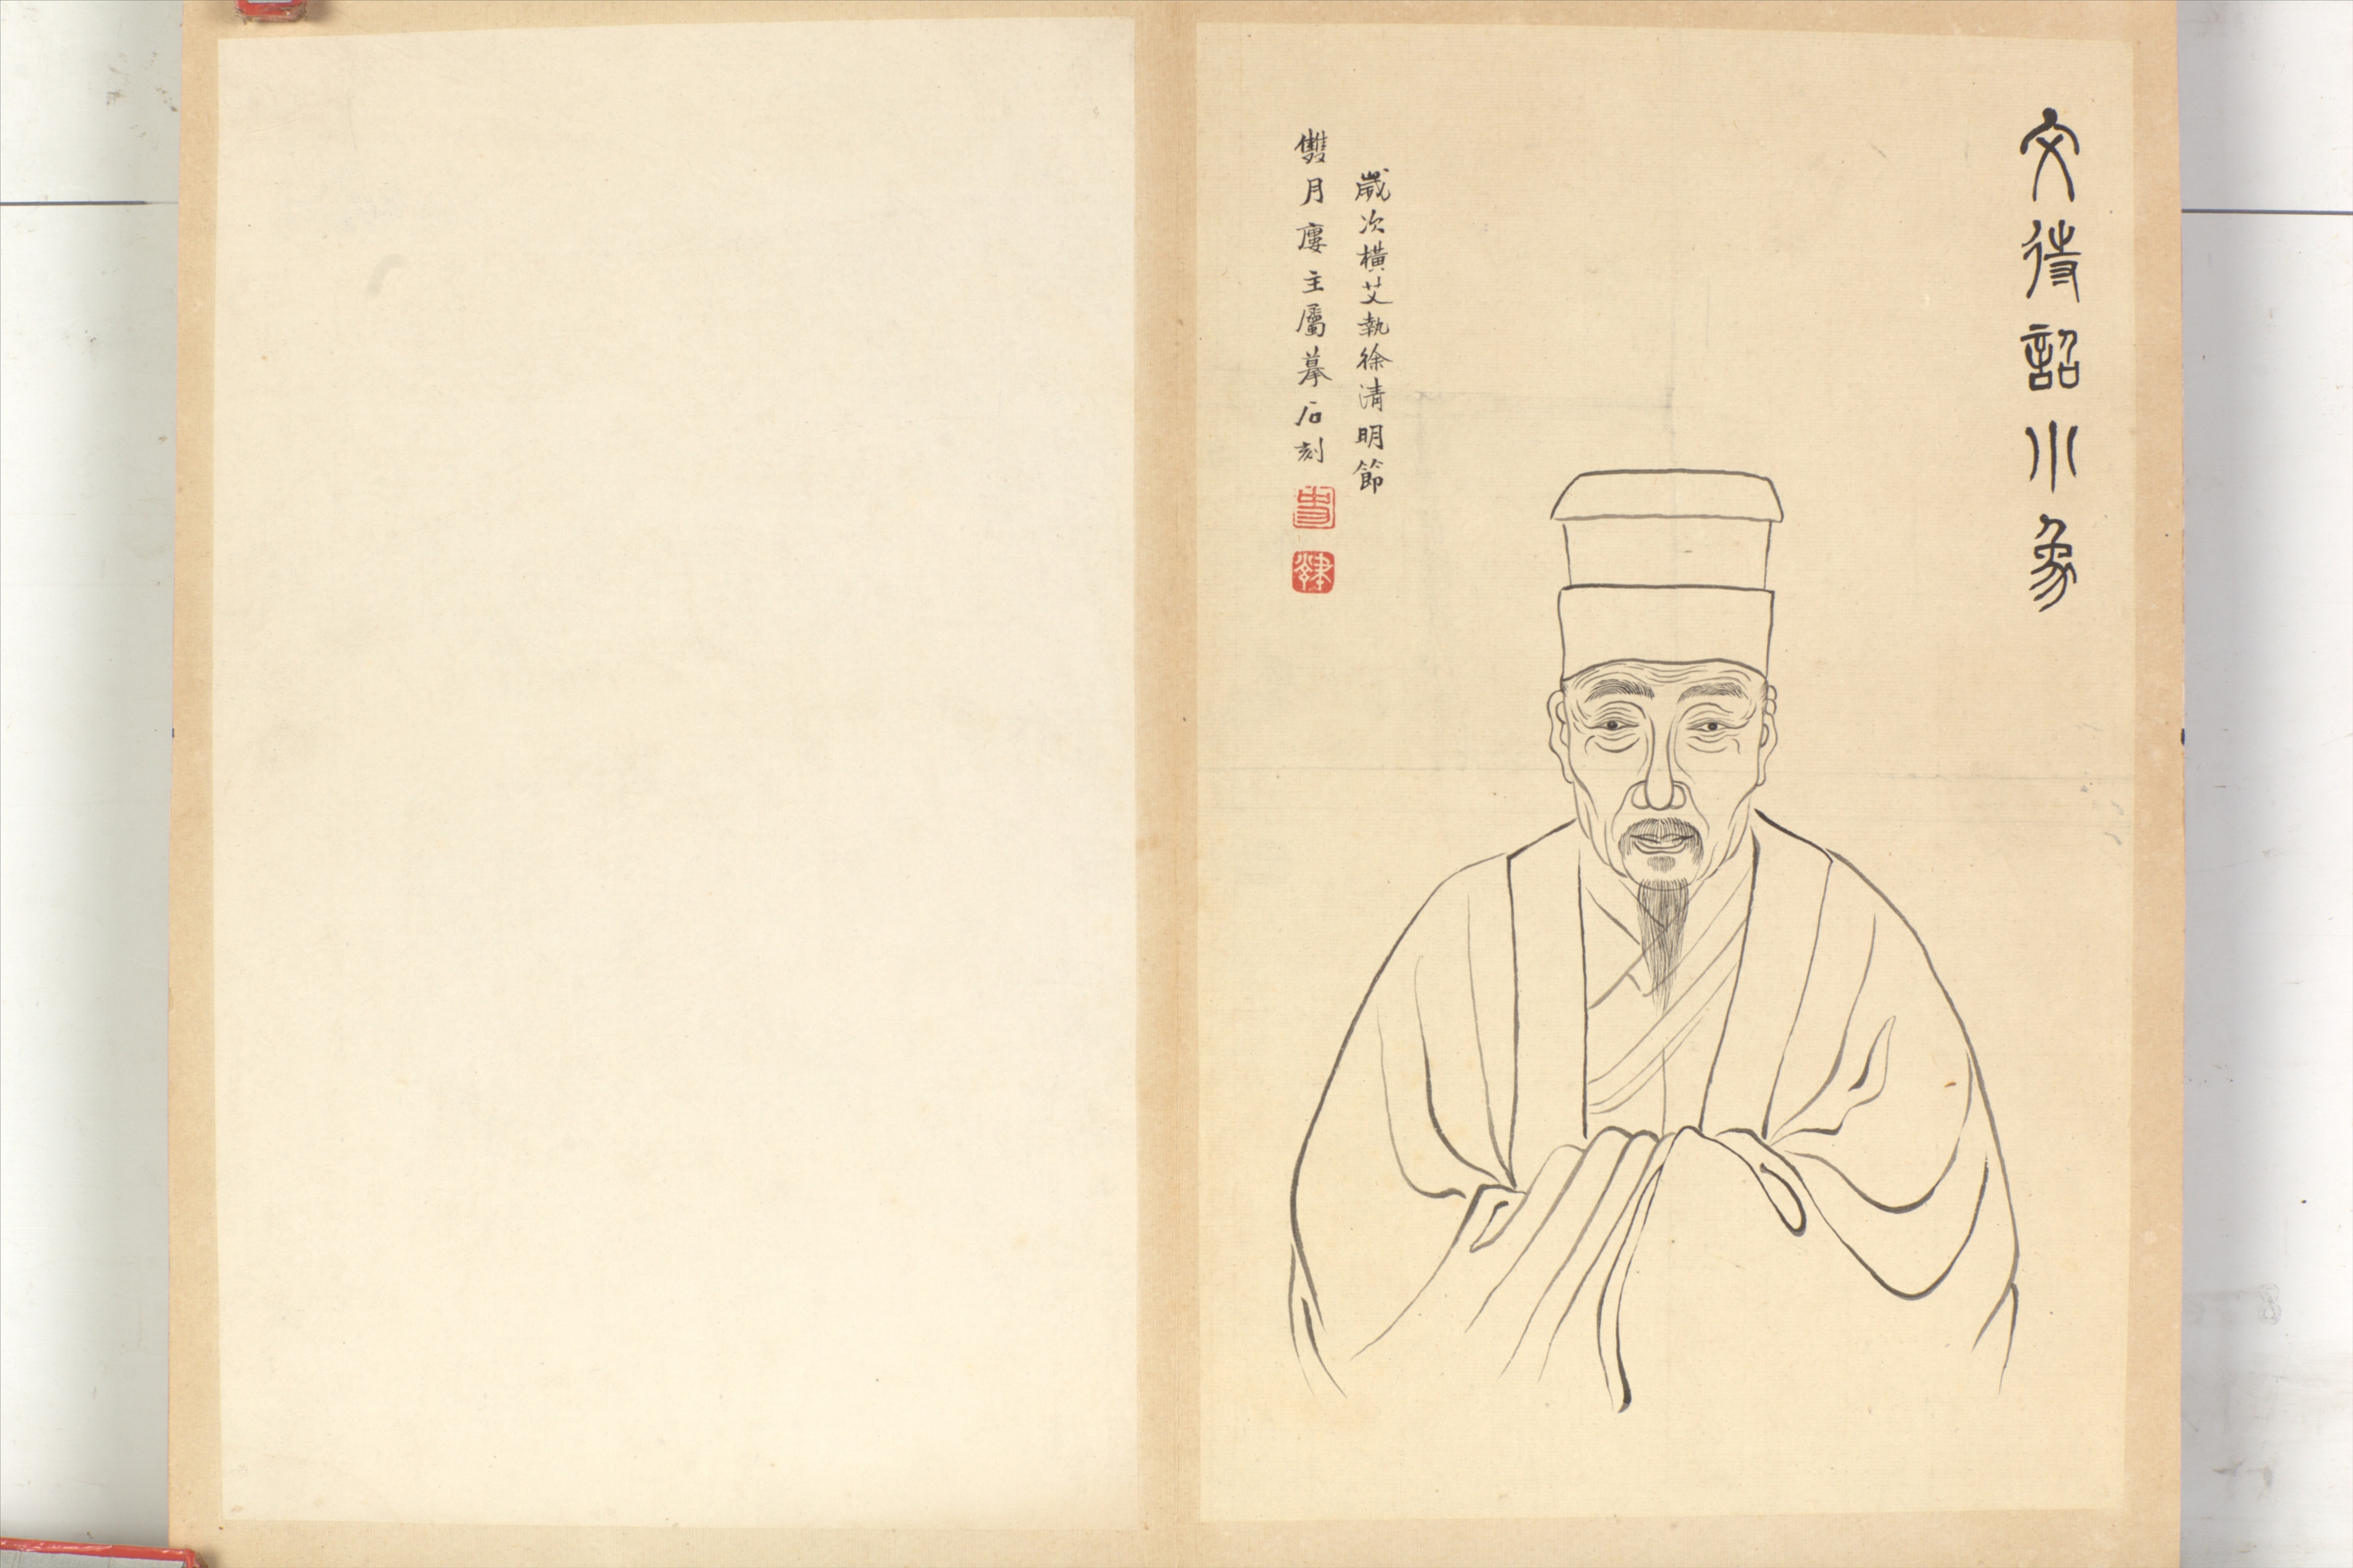 文待詔小象
歲次橫艾執徐清明節
雙月廔主屬摹石刻